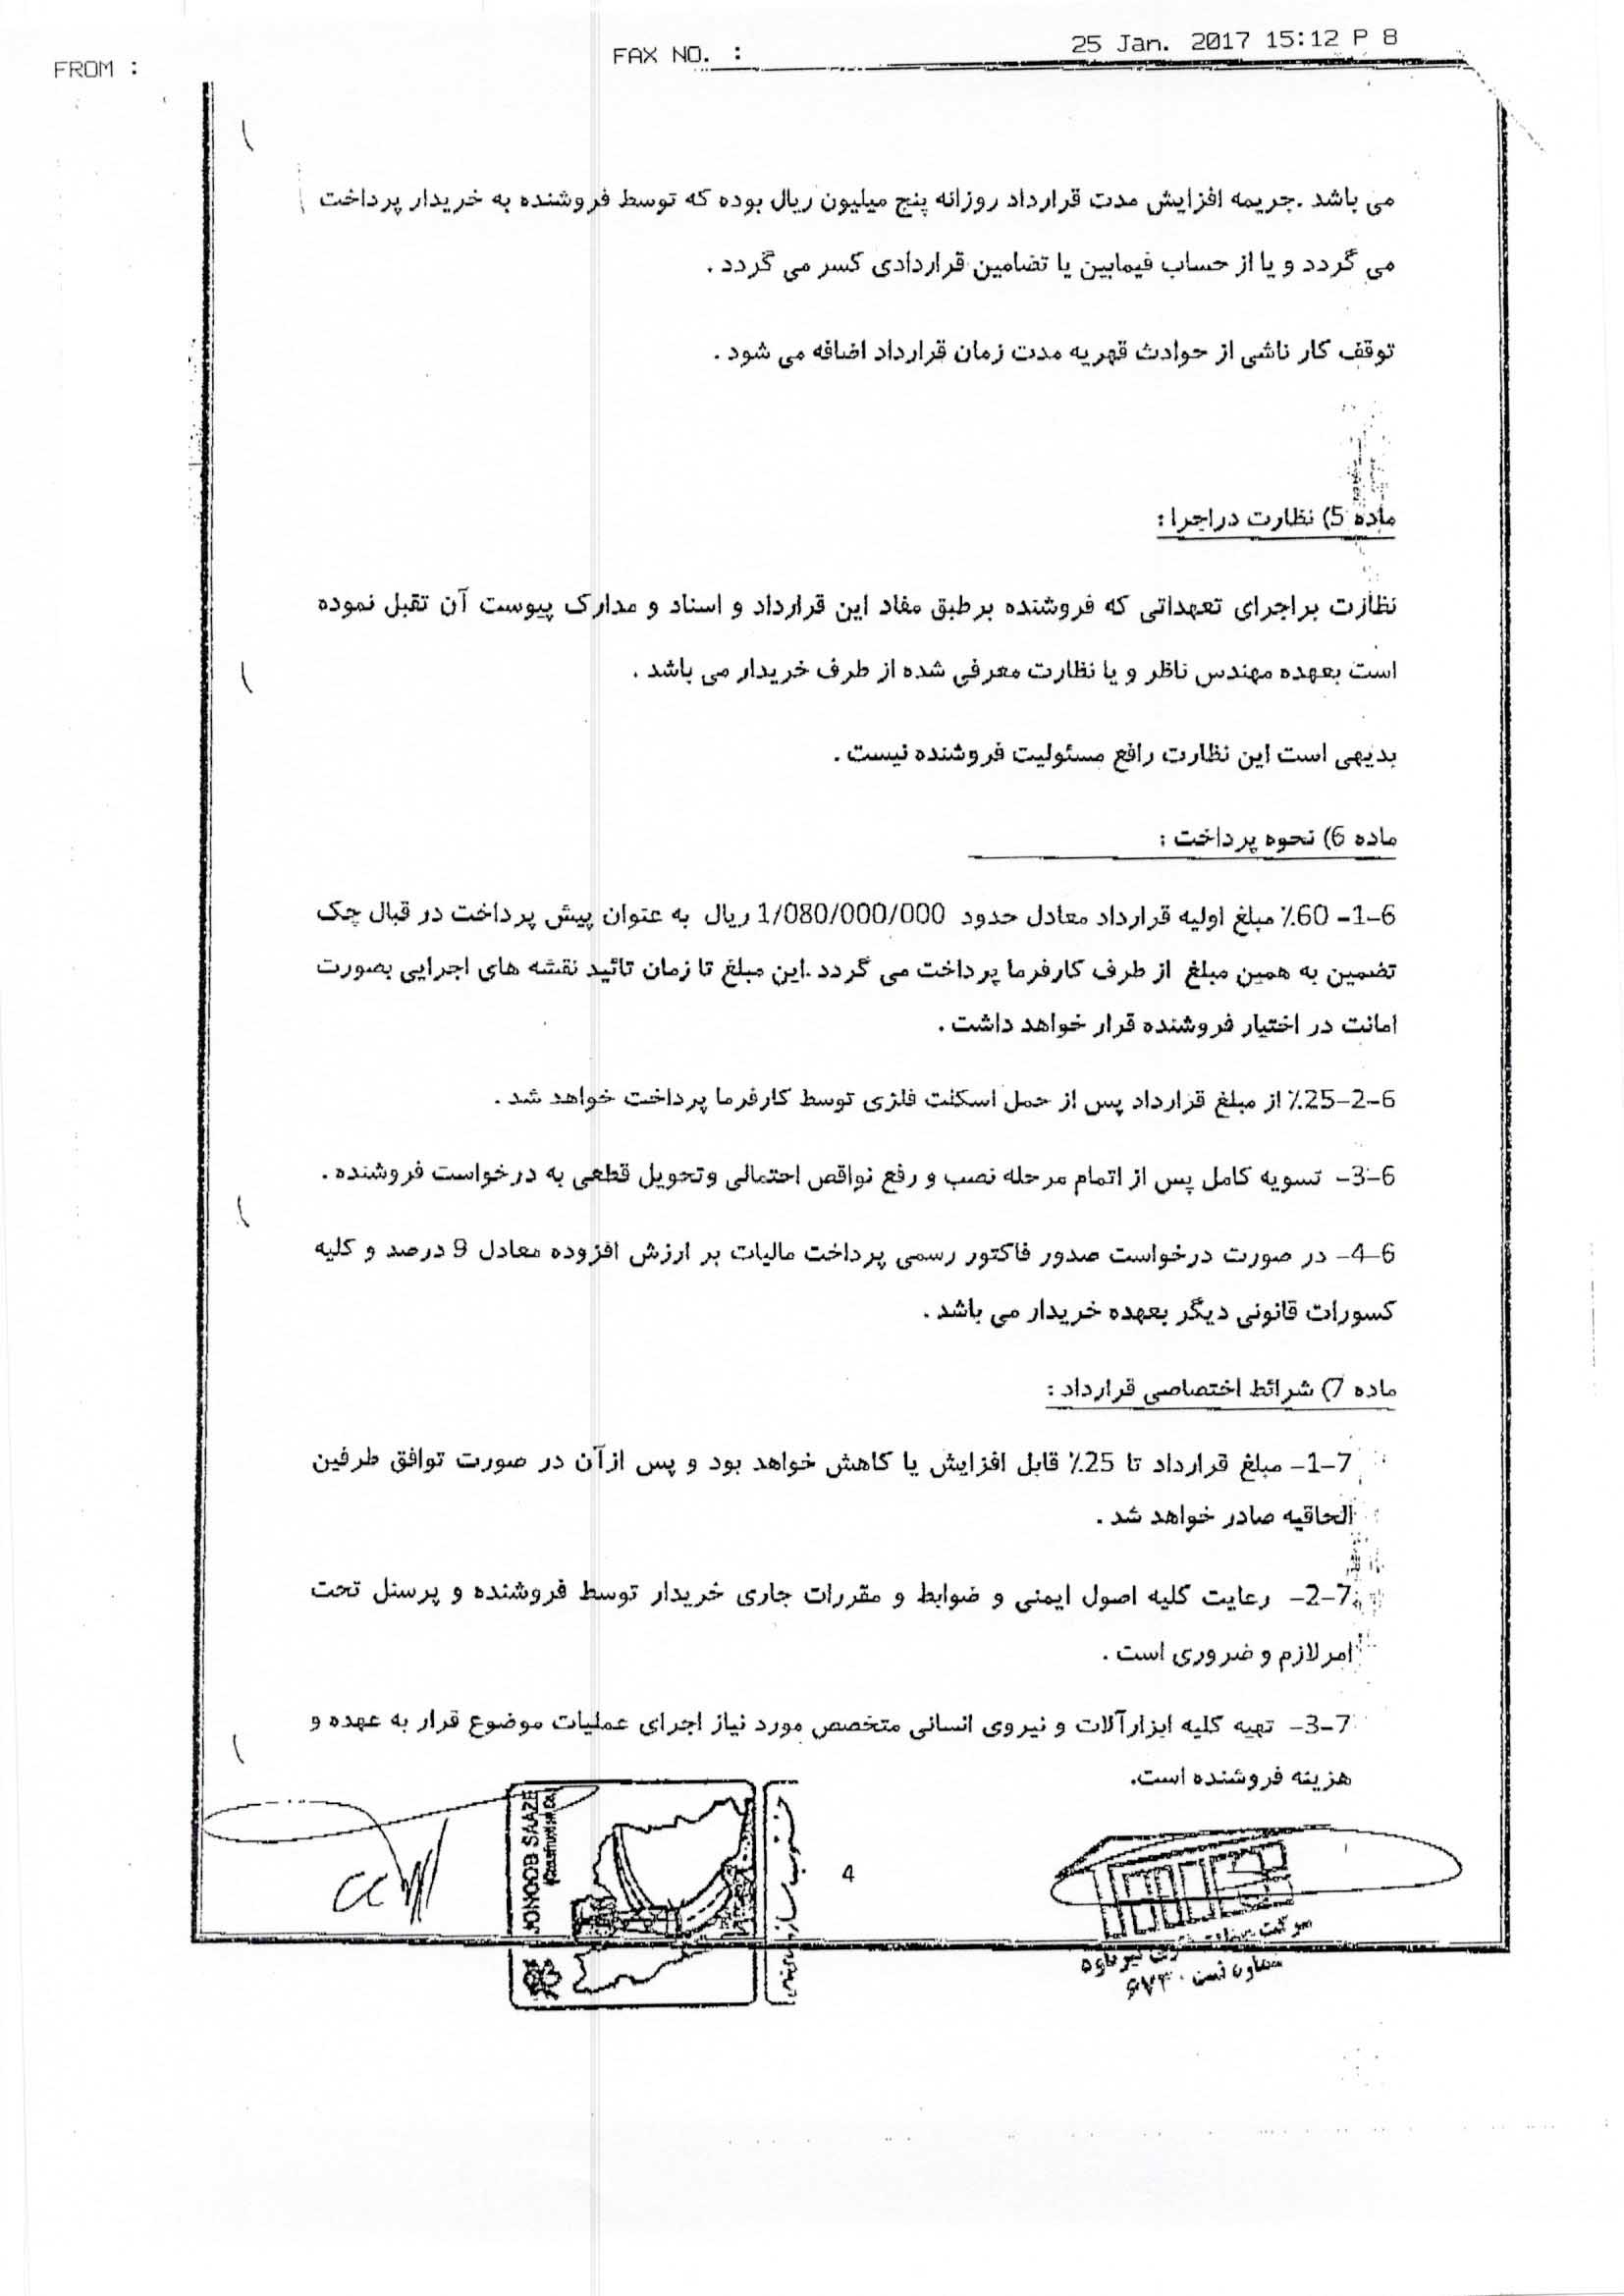 FROM :
FAX NO. :
25 Jan. 2017 15:12 P 8
می باشد .جریمه افزایش مدت قرارداد روزانه پنج میلیون ریال بوده که توسط فروشنده به خریدار پرداخت
می گردد و یا از حساب فیمابین یا تضامین قراردادی کسر می گردد .
توقف کار ناشی از حوادث قهریه مدت زمان قرارداد اضافه می شود .
ماده 5) نظارت دراجرا :
نظارت براجرای تعهداتی که فروشنده برطبق مفاد این قرارداد و اسناد و مدارک پیوست آن تقبل نموده
است بعهده مهندس ناظر و یا نظارت معرفی شده از طرف خریدار می باشد .
بدیهی است این نظارت رافع مسئولیت فروشنده نیست .
ماده 6) نحوه پرداخت :
6-1- 60٪ مبلغ اولیه قرارداد معادل حدود 1/080/000/000 ریال به عنوان پیش پرداخت در قبال چک
تضمین به همین مبلغ از طرف کارفرما پرداخت می گردد .این مبلغ تا زمان تائید نقشه های اجرایی بصورت
امانت در اختیار فروشنده قرار خواهد داشت .
6-2-25٪ از مبلغ قرارداد پس از حمل اسکلت فلزی توسط کارفرما پرداخت خواهد شد .
6-3- تسویه کامل پس از اتمام مرحله نصب و رفع نواقص احتمالی وتحویل قطعی به درخواست فروشنده .
6-4- در صورت درخواست صدور فاکتور رسمی پرداخت مالیات بر ارزش افزوده معادل 9 درصد و کلیه
کسورات قانونی دیگر بعهده خریدار می باشد .
ماده 7) شرائط اختصاصی قرارداد :
7-1- مبلغ قرارداد تا 25٪ قابل افزایش یا کاهش خواهد بود و پس ازآن در صورت توافق طرفین
الحاقیه صادر خواهد شد .
7-2- رعایت کلیه اصول ایمنی و ضوابط و مقررات جاری خریدار توسط فروشنده و پرسنل تحت
امر لازم و ضروری است .
7-3- تهیه کلیه ابزارآلات و نیروی انسانی متخصص مورد نیاز اجرای عملیات موضوع قرار به عهده و
هزینه فروشنده است.
JONOOB SAAZE
4